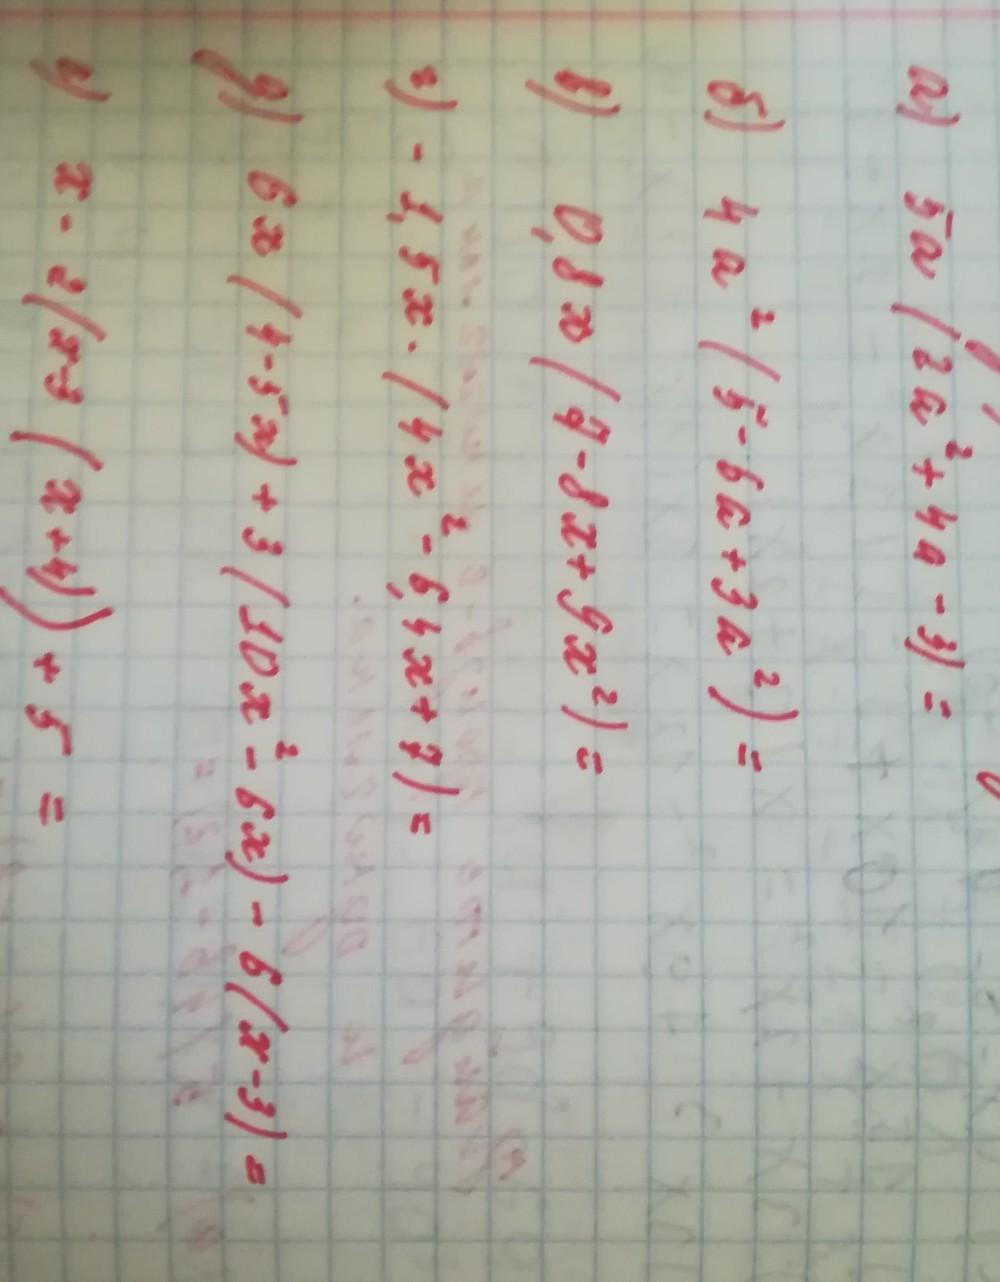 а) 5a(2a²+4a-3)=
б) 4a²(5-6a+3a²)=
в) 0,8x(7-8x+5x²)=
г) -1,5x·(4x²-6,4x+7)=
д) 6x(4-5x)+3(10x²-6x)-6(x-3)=
и) x-2(x-3(x+4))+5=